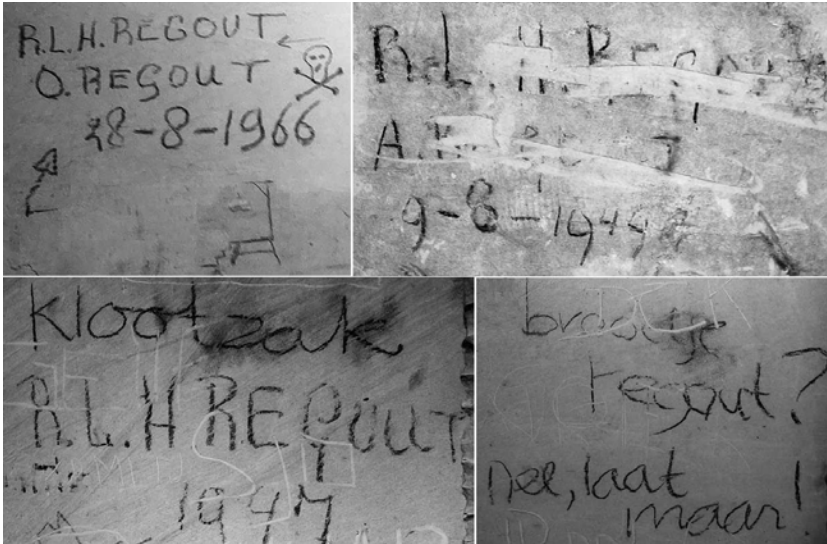 R.L.H. REGOUT
O. REGOUT
28-8-1966
R.L.H. Regout
A.H.
9-8-1949
Klootzak
R.L.H REGOUT
1947
broodje
regout?
nee, laat
maar!